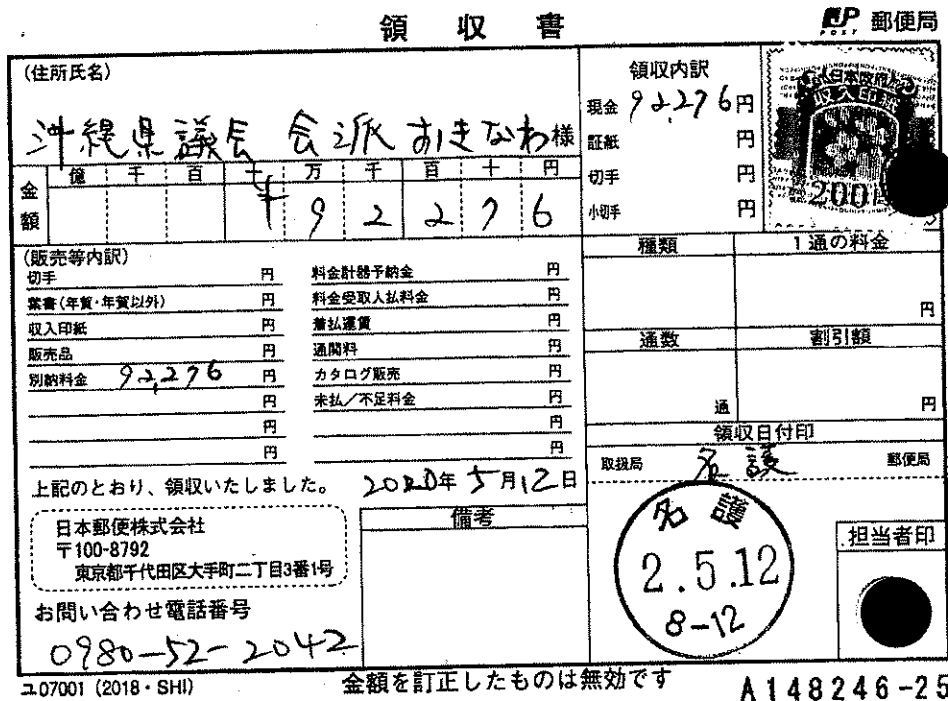 領収書
JP POST 郵便局
(住所氏名)
沖縄県議会 会派 おきなわ様
領収内訳
現金 92,276円
証紙 円
切手 円
小切手 円
日本政府
収入印紙
200
金額
億 千 百 十 万 千 百 十 円
¥ 9 2 2 7 6
(販売等内訳)
切手 円
葉書(年賀・年賀以外) 円
収入印紙 円
販売品 円
別納料金 92,276 円
円
円
円
料金計器予納金 円
料金受取人払料金 円
着払運賃 円
通関料 円
カタログ販売 円
未払/不足料金 円
円
円
種類 1通の料金
円
通数 割引額
通 円
領収日付印
取扱局 名護 郵便局
上記のとおり、領収いたしました。 2020年5月12日
日本郵便株式会社
〒100-8792
東京都千代田区大手町二丁目3番1号
お問い合わせ電話番号
0980-52-2042
備考
名護
2.5.12
8-12
担当者印
ユ07001(2018・SHI)
金額を訂正したものは無効です
A148246-25